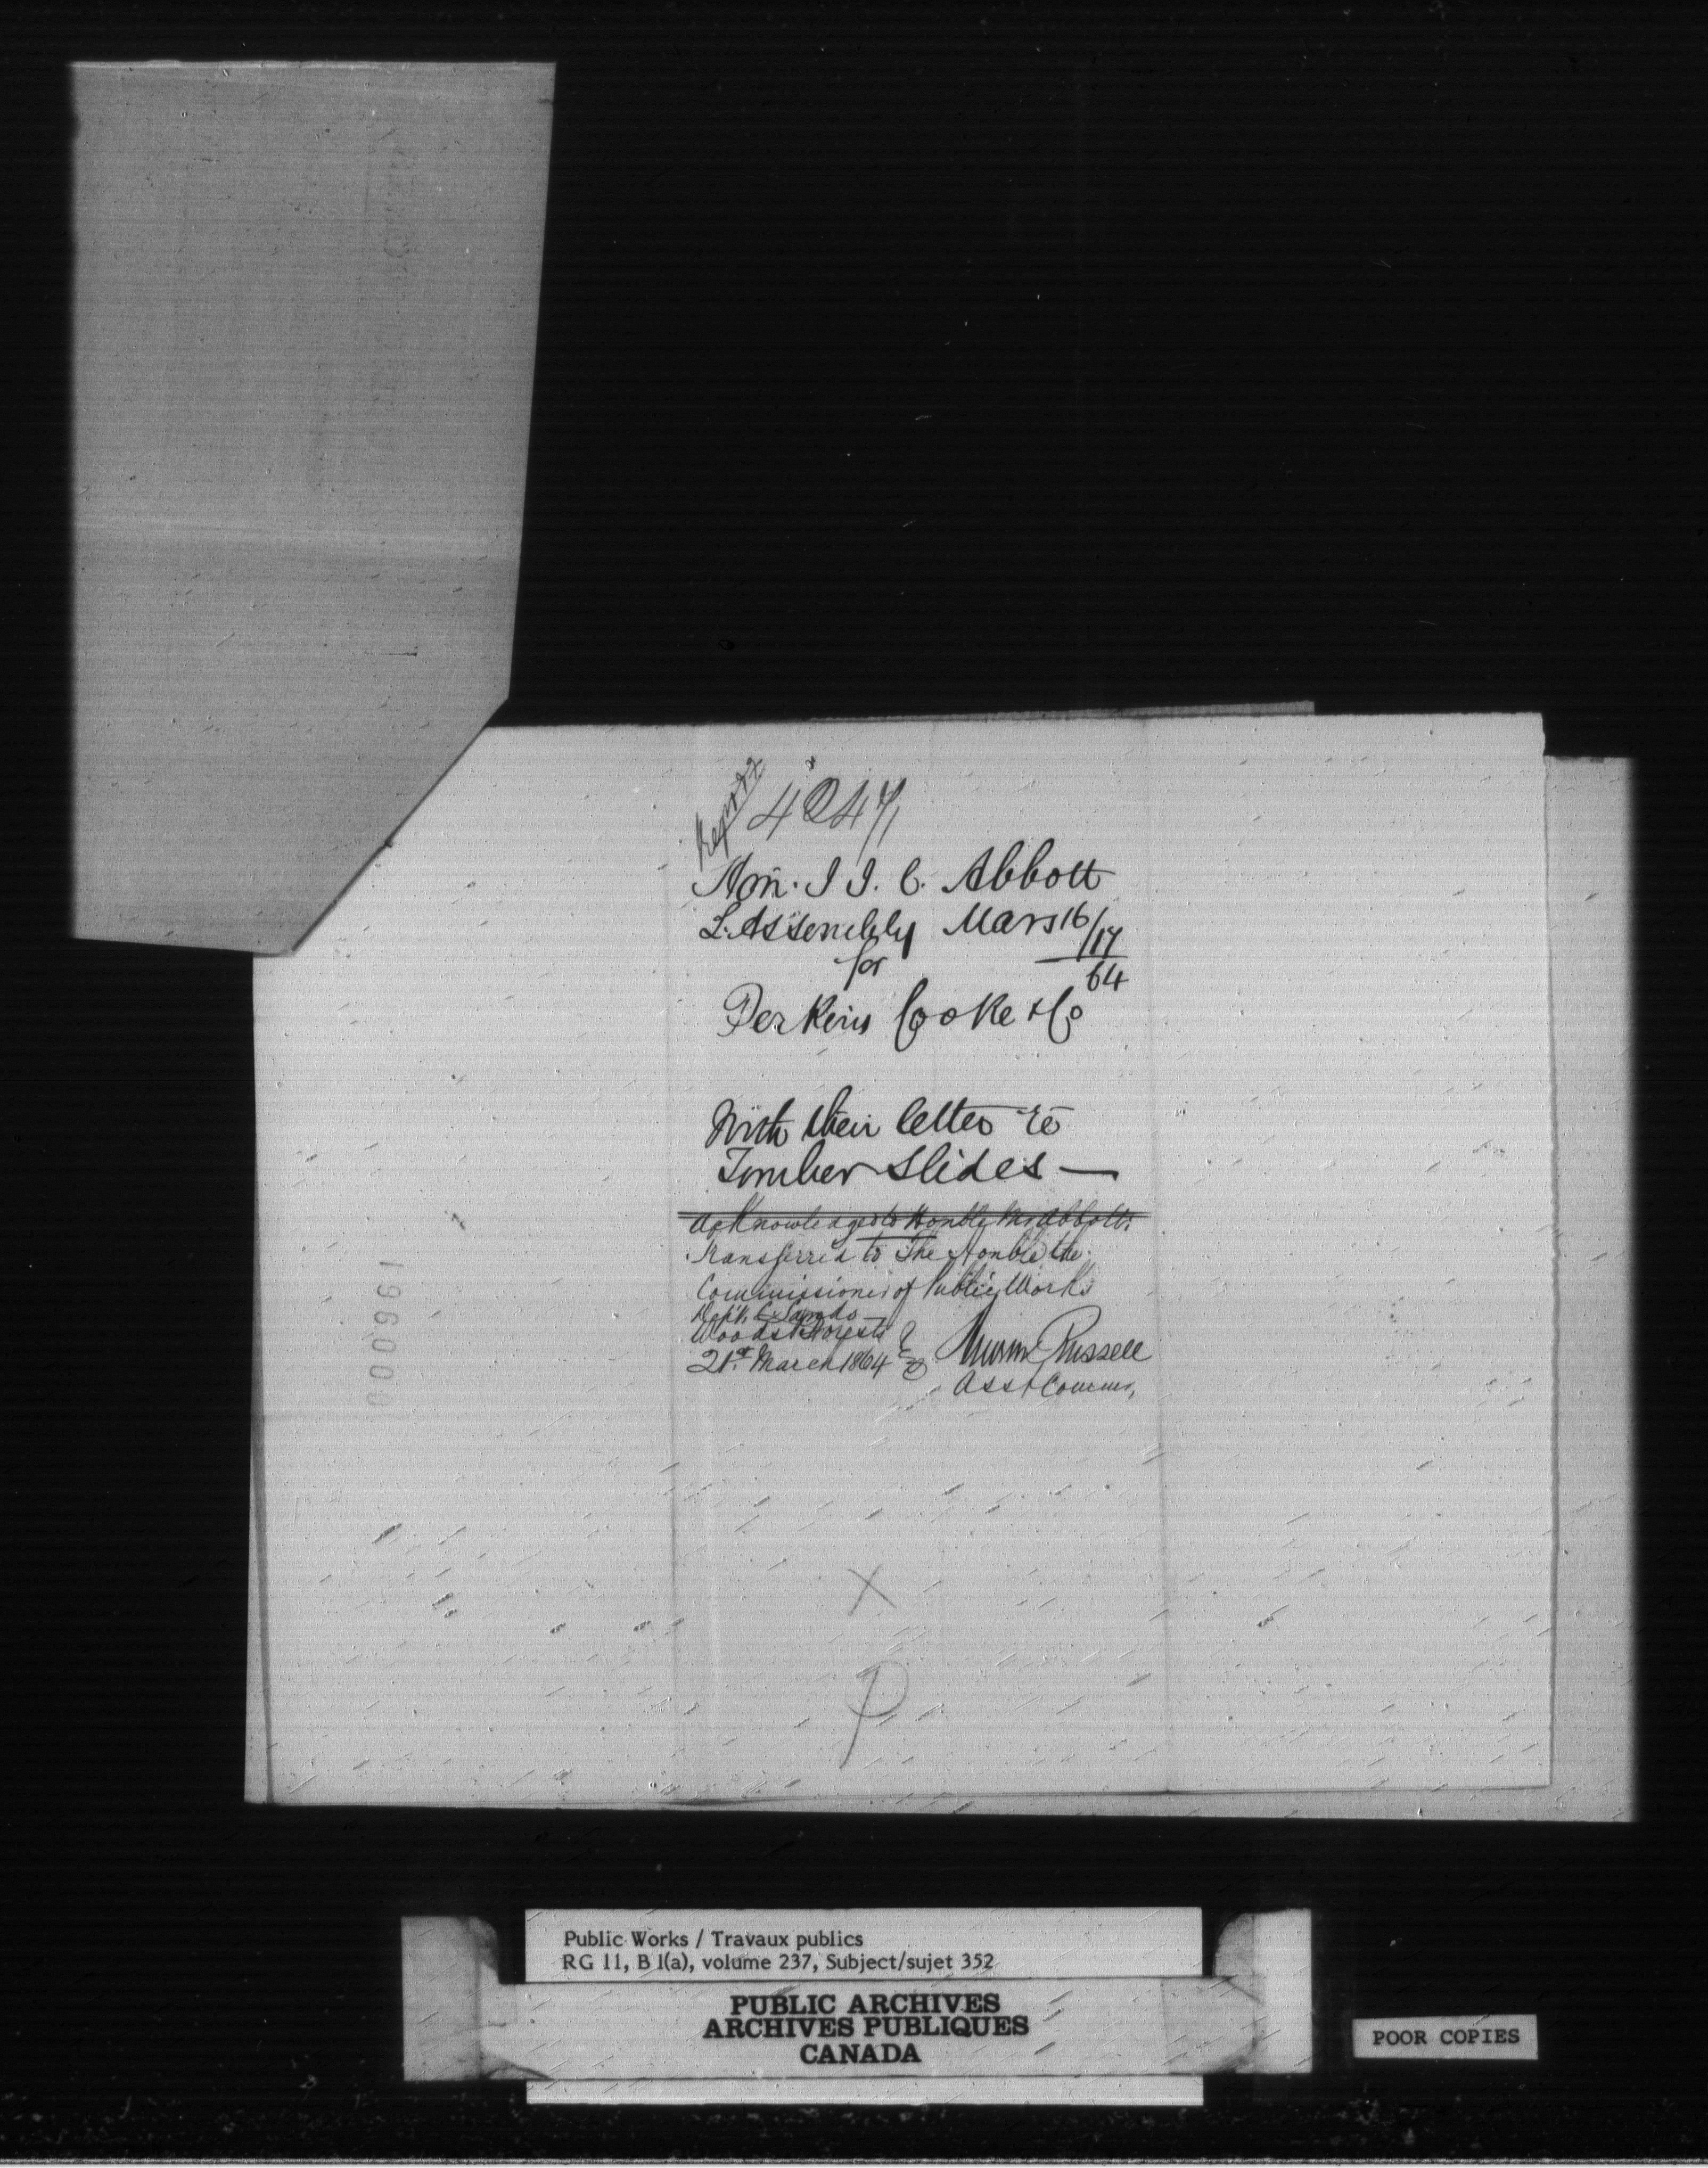 4047
Hon. J J. C. Abbott
L. Assembly Mars 16/17
64
for
Perkins Cooke & Co
With their letter re
Timber Slides —
Acknowledged to Honble Mr Abbott.
Transferred to The Honble the
Commissioner of Public Works
Dept. C. Lands
Woods & Forests
21st March 1864
Russell
Asst Commr,
196000
X
P
Public Works / Travaux publics
RG 11, B 1(a), volume 237, Subject/sujet 352
PUBLIC ARCHIVES
ARCHIVES PUBLIQUES
CANADA
POOR COPIES